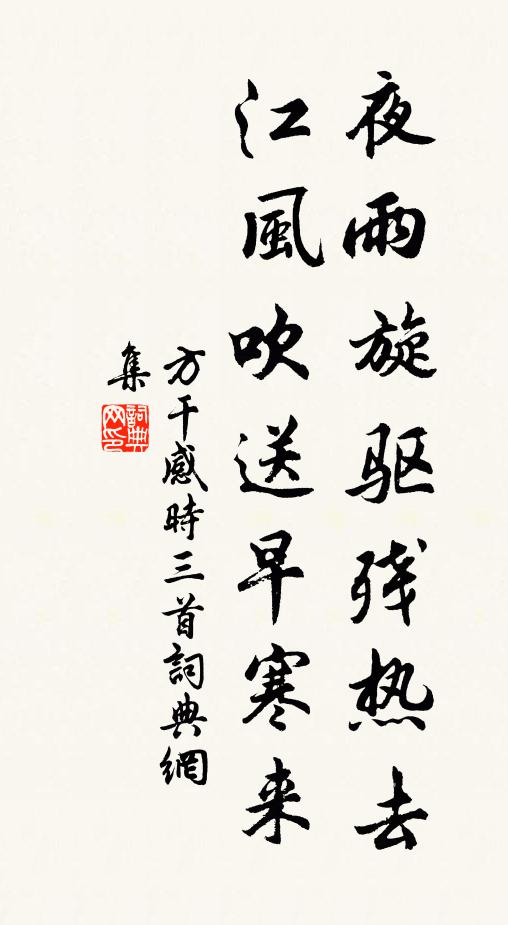 夜雨旋驱残热去
江風吹送早寒来
方干感時三首詞典網
集
詞典网印